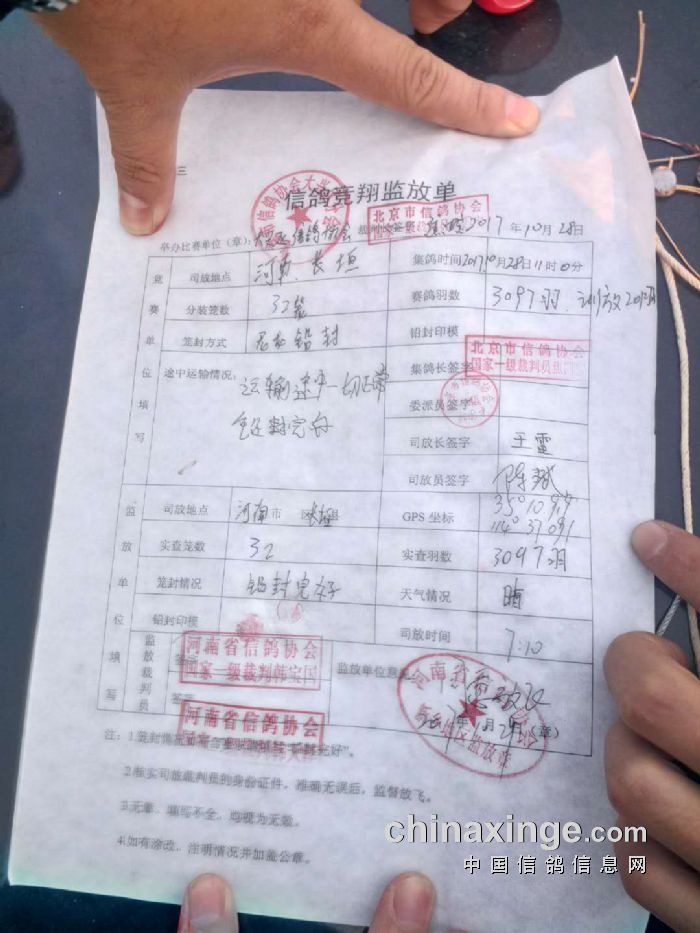 三
信鸽竞翔监放单
北京市信鸽协会
举办比赛单位（章）： 信鸽协会 2017年10月28日
竞赛单位填写
司放地点 河南、长垣 集鸽时间 2017年10月28日11时0分
分装笼数 32笼 赛鸽羽数 3097羽
笼封方式 铅封 铅封印模
途中运输情况： 运输途中一切正常
铅封完好
集鸽长签字 北京市信鸽协会
国家一级裁判员
委派员签字
司放长签字 王雷
司放员签字 陈斌
监放单位填写
司放地点 河南市 区长垣县 GPS 坐标 35°10
114°37
实查笼数 32 实查羽数 3097羽
笼封情况 铅封完好 天气情况 晴
铅封印模 司放时间 7:10
监放裁判员
签字 河南省信鸽协会
国家一级裁判韩宝国
监放单位意见
签字 河南省信鸽协会
河南省
监放章
（章）
注：1.笼封情况 完好”。
2.核实司放裁判员的身份证件，准确无误后，监督放飞。
3.无章、填写不全，均视为无效。
4.如有涂改，注明情况并加盖公章。
chinaxinge.com
中国信鸽信息网